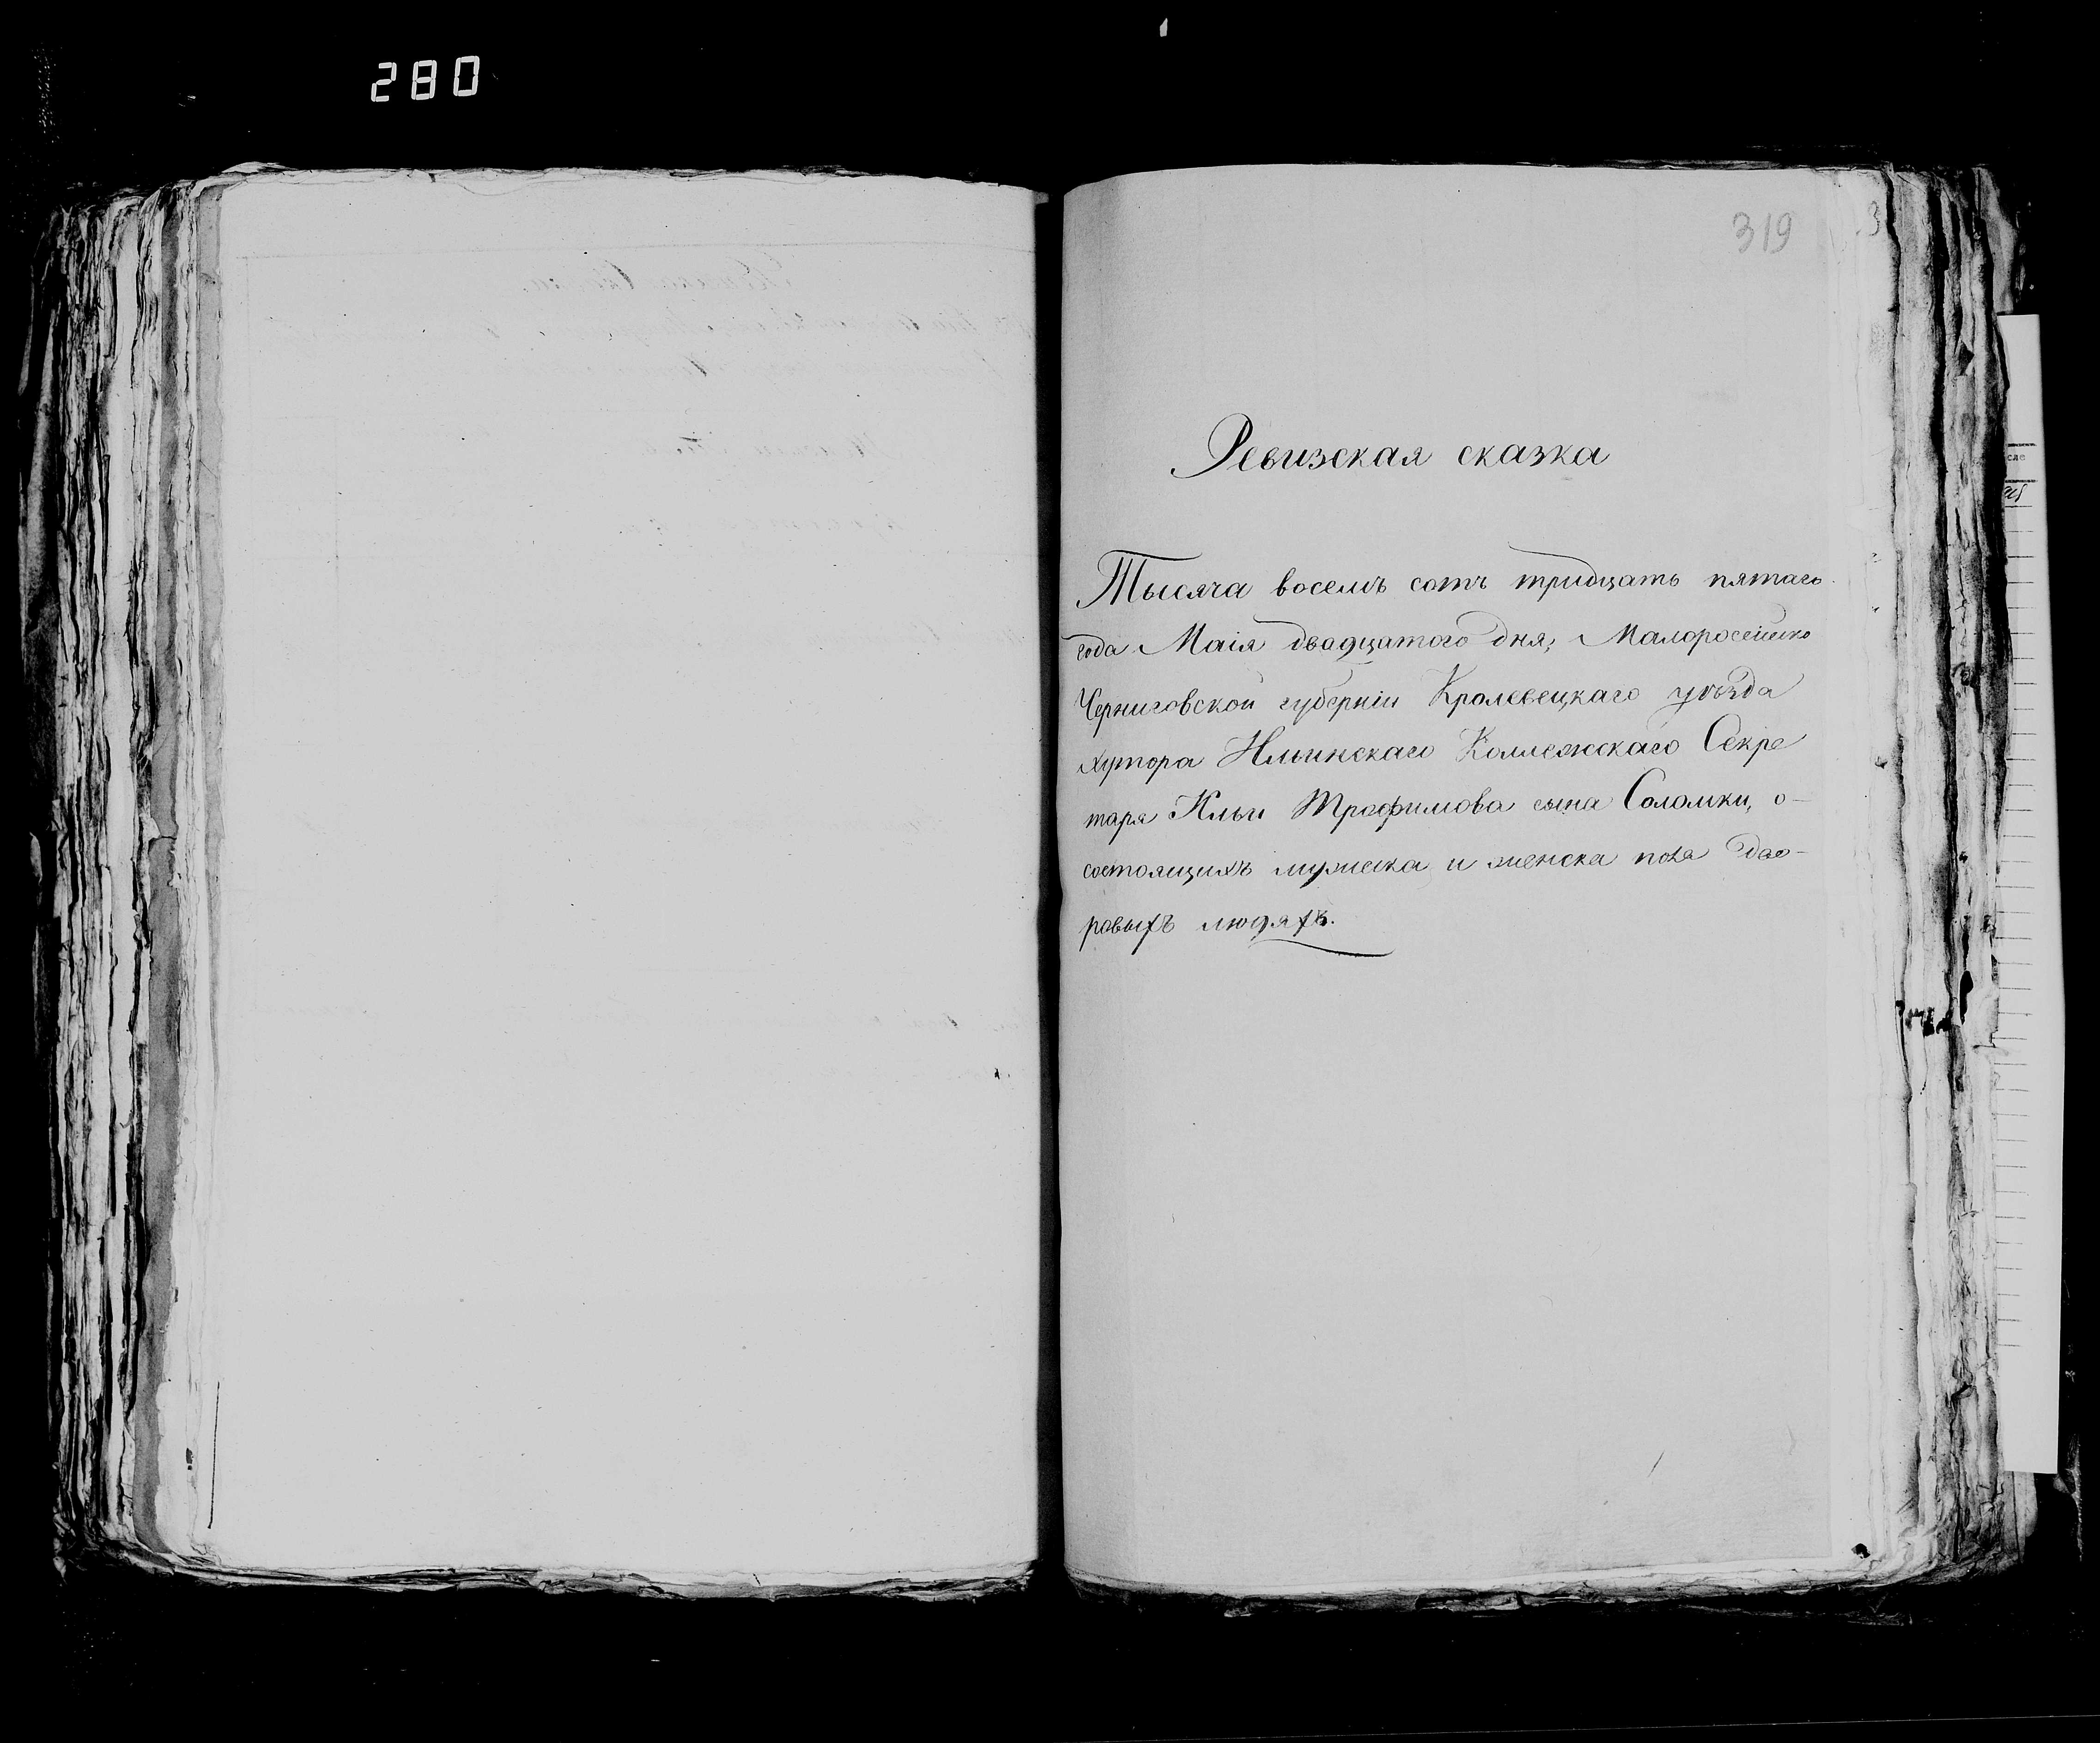 280
319
Ревизская сказка
Тысяча восемъ сотъ тридцать пятаго
года Маія двадцатого дня, Малоросейско
Черниговской губерніи Кролевецкаго уѣзда
хутора Ильинскаго Коллежскаго Секре
таря Ильи Трофимова сына Соломки, о-
состоящихъ мужеска и женска пола дво-
ровыхъ людяхъ.